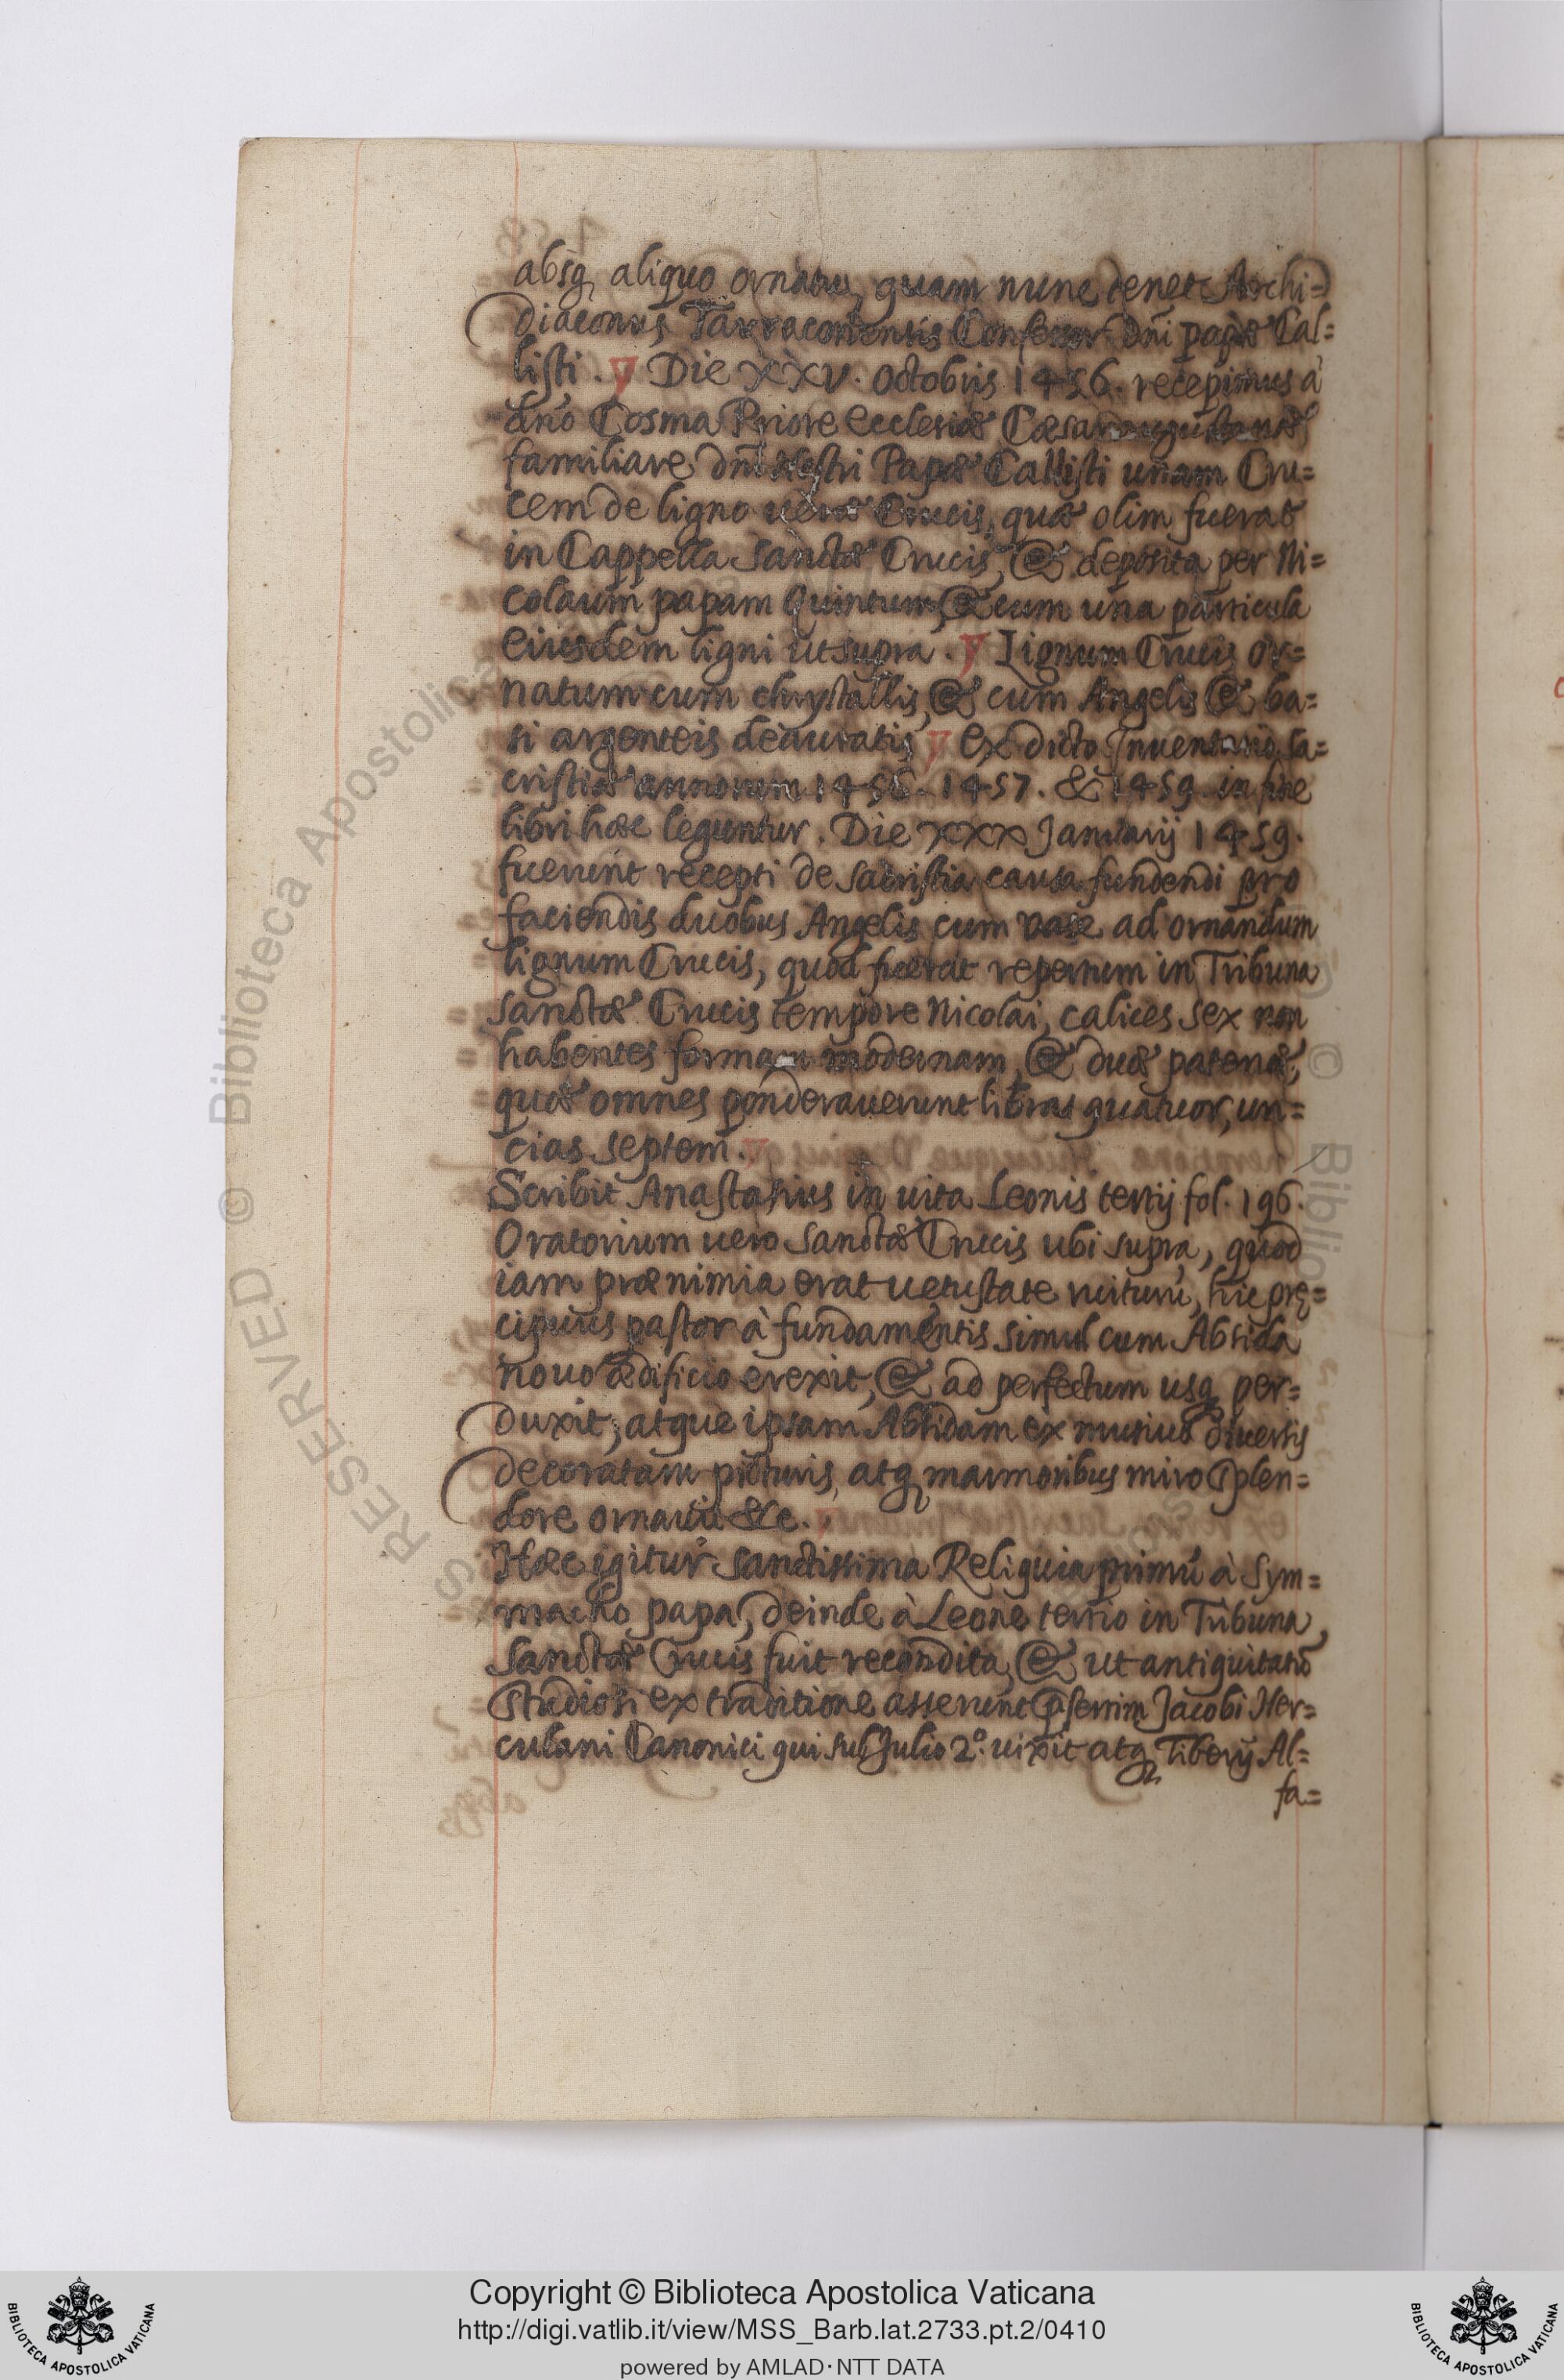 absq aliquo ornatu, quam nunc tenet Archi=
diaconus Tarraconensis Confessor dñi papæ Cal=
listi. Die XXV. octobris 1456. recepimus à
dño Cosma Priore ecclesiæ Cæsaraugustanæ,
familiare dñi Nostri Papæ Callisti unam Cru=
cem de ligno ueræ Crucis, quæ olim fuerat
in Cappella Sanctæ Crucis, & deposita per Ni=
colaum papam Quintum, & cum una particula
eiusdem ligni ut supra. Lignum Crucis or=
natum cum chrystallis, & cum Angelis & ba=
si argenteis deauratis ex dicto Inuentario sa=
cristiæ annorum 1456. 1457. & 1459. in fine
libri hæc leguntur. Die XXX Januarij 1459.
fuerunt recepti de sacristia causa fundendi pro
faciendis duobus Angelis cum vase ad ornandum
lignum Crucis, quod fuerat repertum in Tribuna
sanctæ Crucis tempore Nicolai, calices sex non
habentes formam modernam, & duæ patenæ,
quæ omnes ponderauerunt libras quatuor, un=
cias septem.
Scribit Anastasius in uita Leonis tertij fol. 196.
Oratorium uero Sanctæ Crucis ubi supra, quod
iam præ nimia erat uetustate ruiturũ, hic pre=
cipuus pastor à fundamentis simul cum Absida
nouo ædificio erexit, & ad perfectum usq per=
duxit; atque ipsam Absidam ex musiuo diuersis
decoratam picturis, atq marmoribus miro splen=
dore ornauit &c.
Hæc igitur sanctissima Reliquia primũ à Sym=
macho papa, deinde à Leone tertio in Tribuna
Sanctæ Crucis fuit recondita, & ut antiquitatũ
studiosi ex traditione asserunt p. sertim Jacobi Her=
culani Canonici qui sub Julio 2º. uixit atq Tiberij Al=
fa=
© Biblioteca Apostolica
© Biblio
S RESERVED
Copyright © Biblioteca Apostolica Vaticana
http://digi.vatlib.it/view/MSS_Barb.lat.2733.pt.2/0410
powered by AMLAD·NTT DATA
BIBLIOTECA APOSTOLICA VATICANA
BIBLIOTECA APOSTOLICA VATICANA